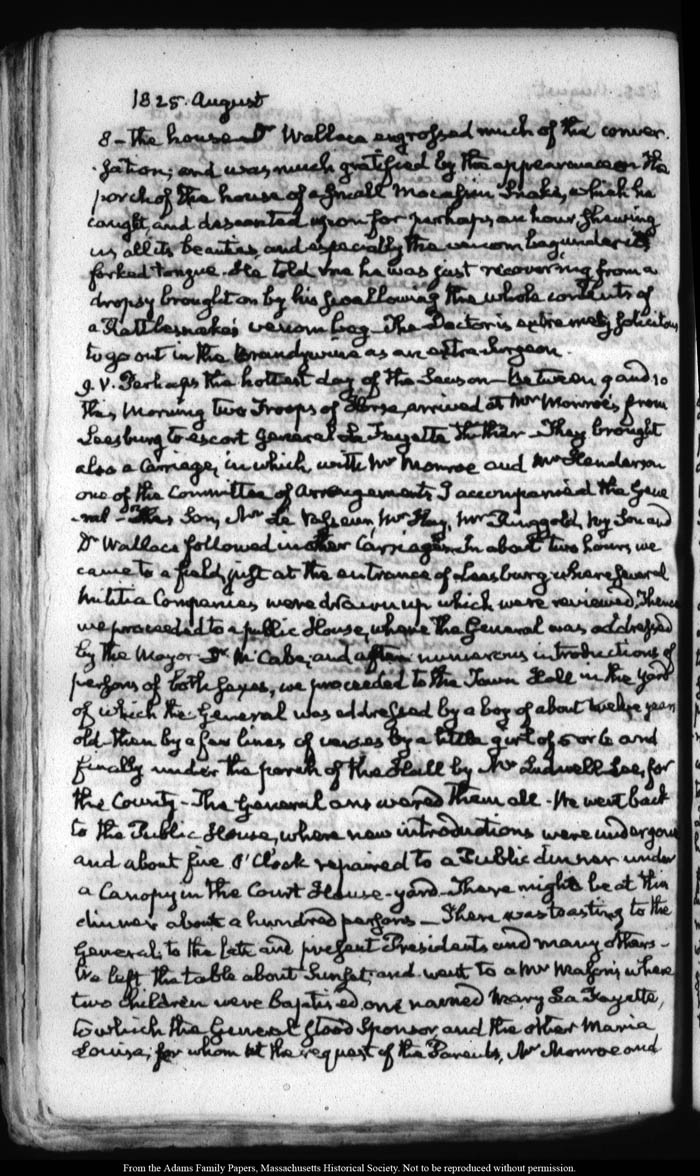 1825. August
8 - the house - Dr Wallace engrossed much of the conver-
-sation; and was much gratified by the appearance on the
porch of the house of a small Mocassin Snake, which he
caught, and descanted upon for perhaps an hour, shewing
us all its beauties, and especially the venom bag under its
forked tongue. He told me he was just recovering from a
dropsy brought on by his swallowing the whole contents of
a Rattlesnake's venom bag - The Doctor is extremely solicitous
to go out in the Brandywine as an extra Surgeon.
9. V. Perhaps the hottest day of the Season - Between 9 and 10
this Morning two Troops of Horse, arrived at Mr Monroe's from
Leesburg to escort General La Fayette thither - They brought
also a Carriage, in which, with Mr Monroe and Mr Henderson
one of the Committee of Arrangements I accompanied the Gene-
-ral - His Son, Mr Le Vasseur, Mr Hay, Mr Ringgold, my Son and
Dr Wallace followed in other Carriages. In about two hours we
came to a field, just at the entrance of Leesburg where several
Militia Companies were drawn up which were reviewed. Thence
we proceeded to a public House, where the General was addressed
by the Mayor Dr McCabe; and after numerous introductions of
persons of both Sexes, we proceeded to the Town Hall in the yard
of which the General was addressed by a boy of about twelve years
old - then by a few lines of verses by a little girl of 5 or 6 and
finally under the porch of the Hall by Mr Ludwell Lee, for
the County - The General answered them all. We went back
to the Public House, where new introductions were undergone
and about five O'Clock repaired to a Public dinner under
a Canopy in the Court House-yard - There might be at this
dinner about a hundred persons - There was toasting to the
General, to the late and present Presidents and many others -
We left the table about Sunset, and went to a Mr Mason's where
two children were baptised, one named Mary La Fayette,
to which the General stood Sponsor, and the other Maria
Louisa; for whom at the request of the Parents, Mr Monroe and
From the Adams Family Papers, Massachusetts Historical Society. Not to be reproduced without permission.